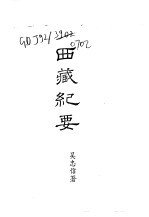 GD J92/3902
0702
西藏紀要
吳忠信著